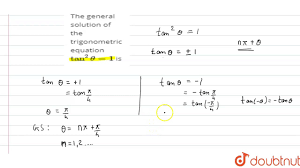 The general
solution of
the
trigonometric
equation
tan² θ = 1 is
tan² θ = 1
tan θ = ± 1
nπ + θ
tan θ = +1
= tan π/4
θ = π/4
GS : θ = nπ + π/4
n = 1, 2 ....
tan θ = -1
= - tan π/4
= tan (-π/4)
tan(-θ) = - tan θ
doubtnut